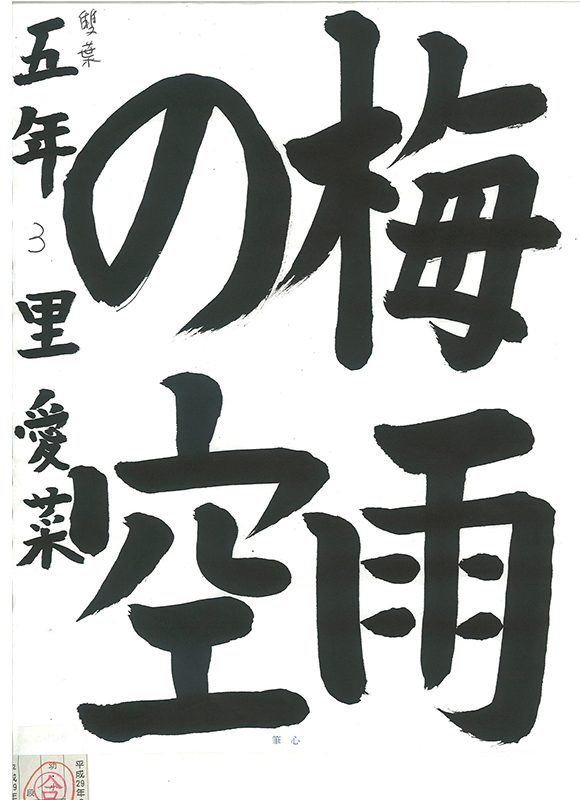 梅雨
の空
雙葉
五年 3 里愛菜
心筆
平成29年
合
段
幼